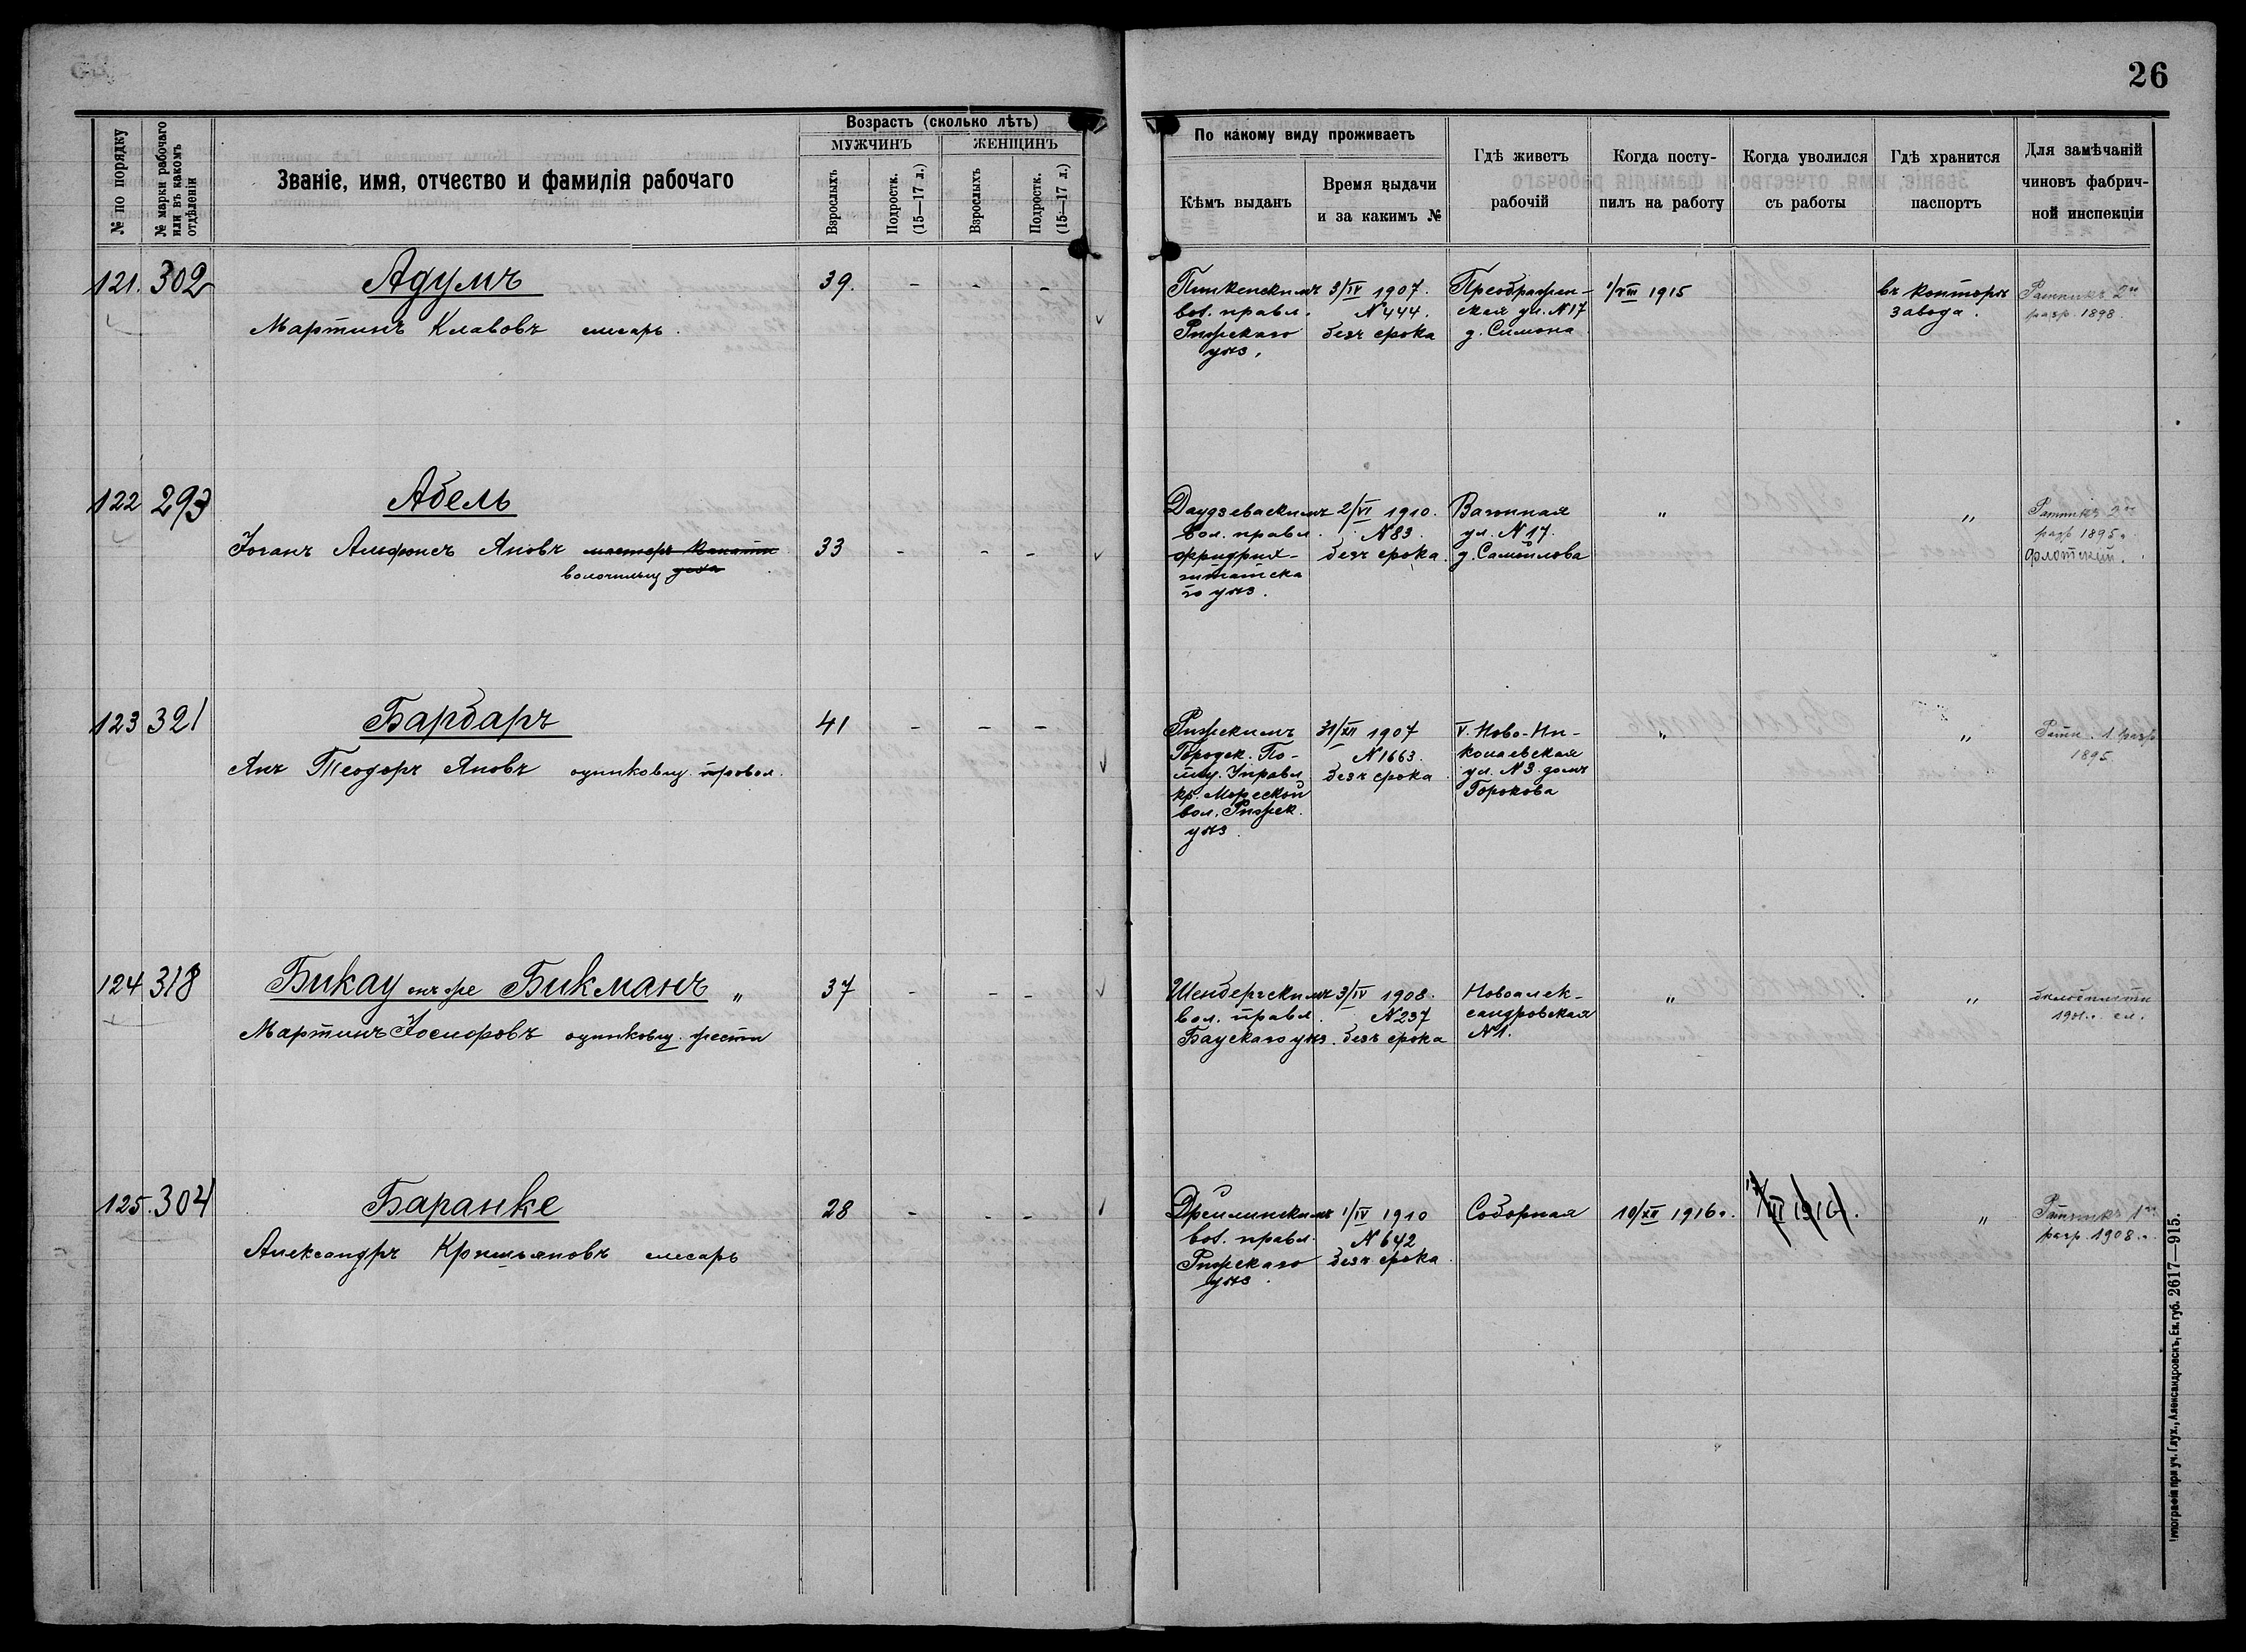 26
№ по порядку
№ марки рабочаго или въ какомъ отдѣленіи
Званіе, имя, отчество и фамилія рабочаго
Возрастъ (сколько лѣтъ)
МУЖЧИНЪ
ЖЕНЩИНЪ
Взрослыхъ
Подростк. (15—17 л.)
Взрослыхъ
Подростк. (15—17 л.)
По какому виду проживаетъ
Кѣмъ выданъ
Время выдачи
и за какимъ №
Гдѣ живетъ
рабочій
Когда посту-
пилъ на работу
Когда уволился
съ работы
Гдѣ хранится
паспортъ
Для замѣчаній
чиновъ фабрич-
ной инспекціи
121. 302
Адумъ
Мартинъ Клавовъ слесарь.
39. - - -
Пинкенскимъ
вол. правл.
Рижскаго
уѣз.
3/IV 1907.
N 444.
безъ срока
Преображен-
ская ул. N 17
д. Симона
1/VIII 1915
въ конторѣ
завода.
Ратникъ 2го
разр. 1898.
122 293
Абель
Іоганъ Альфонсъ Яновъ мастеръ
волочильщ цеха
33 - - -
Даудзеваскимъ
вол. правл.
Фридрих-
штатска
го уѣз.
2/VI 1910.
N 83.
безъ срока.
ул. N 17.
д. Самойлова
"
"
Ратникъ 2го
разр 1895 г.
флотский.
123 321
Барбаръ
Янъ Теодоръ Яновъ оцинковщ. провол.
41 - - -
Рижскимъ
Городск. По-
лиц. Управл
кр. Морсской
вол. Рижск.
уѣз.
31/XII 1907
N 1663.
безъ срока
V. Ново-Ни-
колаевская
ул. N 3 домъ
Горокова
"
"
Ратн. 1 разр
1895.
124 318
Бикау онъ же Бикманъ "
Мартинъ Іосифовъ оцинковщ. жести
37 - - -
Шенбергскимъ
вол. правл.
Баускаго уѣз.
3/IV 1908.
N 237
безъ срока
Новоалек-
сандровская
N 1.
"
"
125. 304
Баранке
Александръ Кришьяновъ слесарь
28 - - -
Дрейлинскимъ
вол. правл.
Рижскаго
уѣз.
1/IV 1910
N 642
безъ срока
Соборная
10/XII 1916 г.
"
Ратникъ 1го
разр. 1908 г.
Типографія при уч. Глух., Александровскъ, Ек. губ. 2617—915.